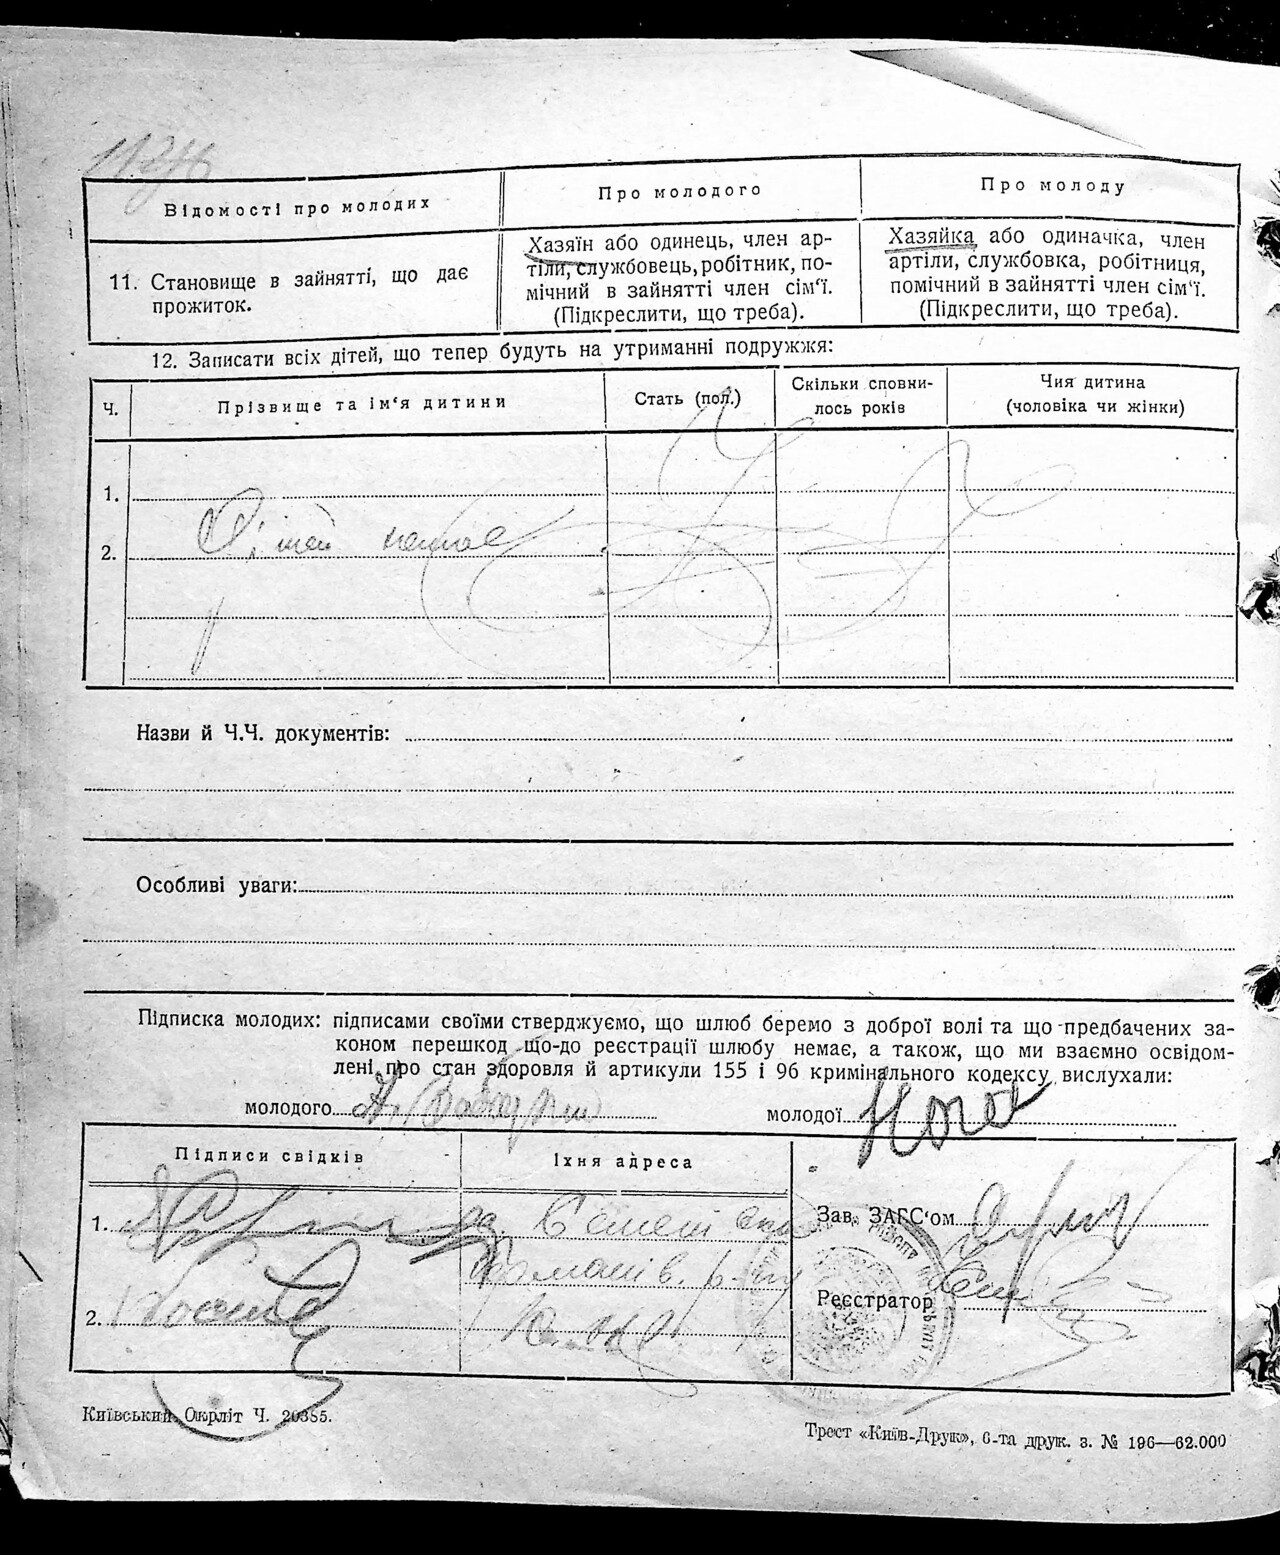 Відомості про молодих
Про молодого
Про молоду
11. Становище в зайнятті, що дає
прожиток.
Хазяїн або одинець, член ар-
тіли, службовець, робітник, по-
мічний в зайнятті член сім'ї.
(Підкреслити, що треба).
Хазяйка або одиначка, член
артіли, службовка, робітниця,
помічний в зайнятті член сім'ї.
(Підкреслити, що треба).
12. Записати всіх дітей, що тепер будуть на утриманні подружжя:
Ч.
Прізвище та ім'я дитини
Стать (пол.)
Скільки сповни-
лось років
Чия дитина
(чоловіка чи жінки)
1.
2. Дітей немає
Назви й Ч.Ч. документів:
Особливі уваги:
Підписка молодих: підписами своїми стверджуємо, що шлюб беремо з доброї волі та що предбачених за-
коном перешкод що-до реєстрації шлюбу немає, а також, що ми взаємно освідом-
лені про стан здоровля й артикули 155 і 96 кримінального кодексу вислухали:
молодого
молодої
Підписи свідків
Їхня адреса
1.
2.
Зав. ЗАГС'ом
Реєстратор
Київський Окрліт Ч. 20385.
Трест «Київ-Друк», 6-та друк. з. № 196—62.000